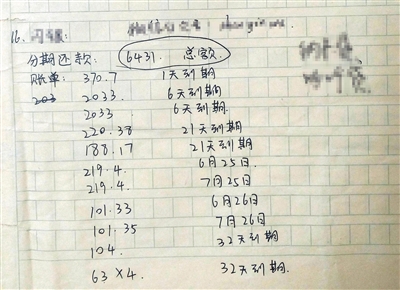 16.
分期还款: 6431. 总额
账单: 370.7 1天到期
203 2033. 6天到期
2033 6天到期
220.38 21天到期
188.17 21天到期
219.4 6月25日.
219.4. 7月25日
101.33 6月26日
101.35 7月26日
104. 32天到期
63 ×4. 32天到期.